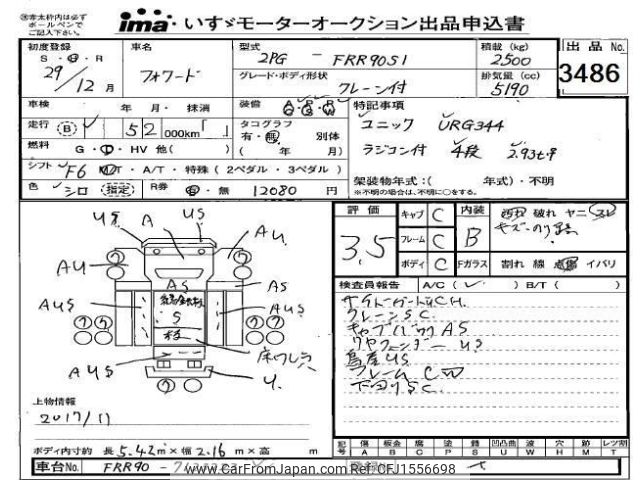 ※赤太枠内は必ず
ボールペンで
ご記入下さい。
ima いすゞモーターオークション出品申込書
初度登録 車名 型式 積載 (kg) 出品 No.
S・H・R フォワード 2PG - FRR90S1 2500 3486
29/12 月 グレード・ボディ形状 クレーン付 排気量 (cc) 5190
車検 年 月・ 抹消 装備 特記事項
走行 52 000km タコグラフ ユニック URG344
有・無 別体
燃料 G・D・HV 他( ) ( 年 月) ラジコン付 4段 2.93t吊
シフト F6 M/T・A/T・特殊 (2ペダル・3ペダル)
架装物年式:( 年式)・不明
※不明の場合は、不明に○をする。
色 シロ (指定) R券 有・無 12080 円
評価 3.5 キャブ C 内装 B 破れ ヤニ スレ
フレーム C
ボディ C Fガラス 割れ 線 点傷 イバリ
検査員報告 A/C ( ) B/T ( )
サイドガードUCH.
クレーンSC.
キャブバックAS
リヤフェンダー US
鳥居US
フレーム C
下回りSC.
US A US
AU AU.
AUS AS AS AUS
S
床ワレ穴
AUS U.
上物情報
2017/11
ボディ内寸約 長 5.42 m×幅 2.16 m×高 m
記号 傷 A 板金 B 腐 C 塗 P 錆 S 凹凸曲 U 波 W 穴 H 跡 M レンズ割 T
車台No. FRR90-
www.CarFromJapan.com Ref:CFJ1556698